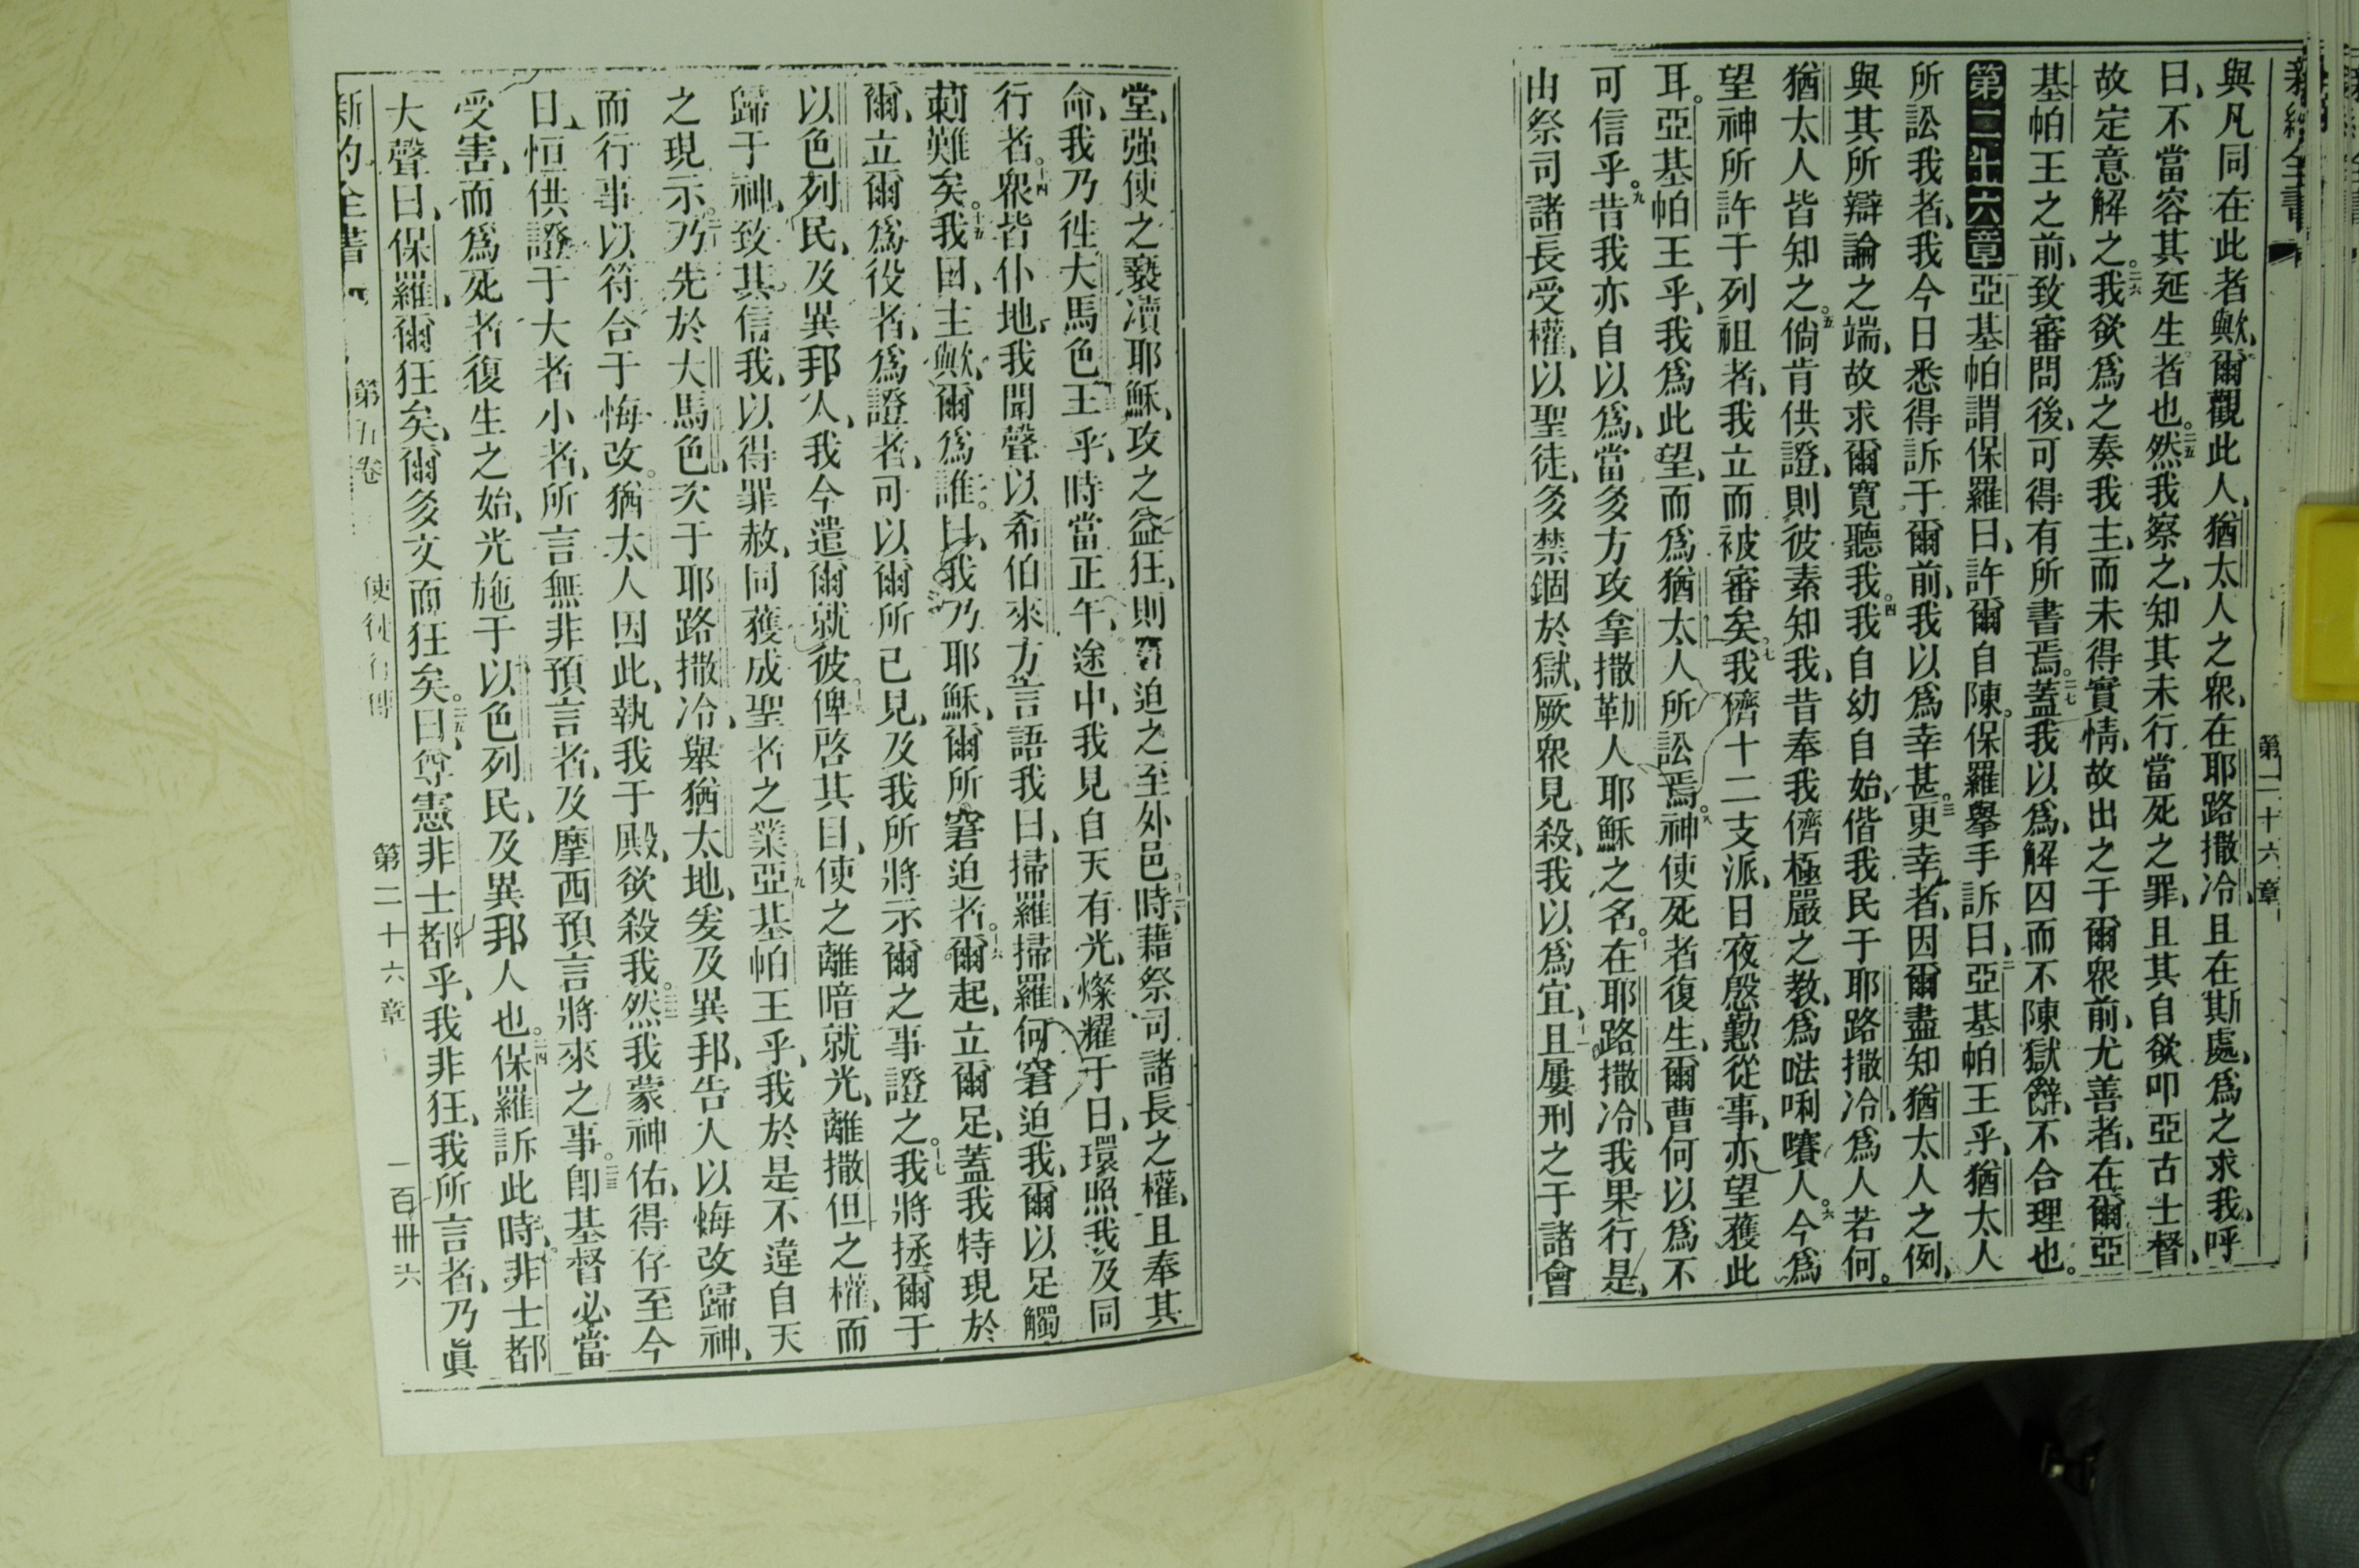 第二十六章
與凡同在此者歟、爾觀此人、猶太人之衆、在耶路撒冷、且在斯處、爲之求我、呼
曰、不當容其延生者也。二五然我察之、知其未行當死之罪、且其自欲叩亞古士督、
故定意解之。二六我欲爲之奏我主、而未得實情、故出之于爾衆前、尤善者、在爾亞
基帕王之前、致審問後、可得有所書焉。二七蓋我以爲、解囚而不陳獄辭、不合理也。
第二十六章亞基帕謂保羅曰、許爾自陳。保羅擧手訴曰、二亞基帕王乎、猶太人
所訟我者、我今日悉得訴于爾前、我以爲幸甚。三更幸者、因爾盡知猶太人之例、
與其所辯論之端、故求爾寬聽我。四我自幼自始、偕我民于耶路撒冷、爲人若何。
猶太人皆知之。五倘肯供證、則彼素知我、昔奉我儕極嚴之教、爲𠵽唎嚽人。六今爲
望神所許于列祖者、我立而被審矣。七我儕十二支派、日夜慇懃從事、亦望獲此
耳。亞基帕王乎、我爲此望、而爲猶太人所訟焉。八神使死者復生、爾曹何以爲不
可信乎。九昔我亦自以爲、當多方攻拿撒勒人耶穌之名。十在耶路撒冷、我果行是、
由祭司諸長受權、以聖徒、多禁錮於獄、厥衆見殺、我以爲宜、十一且屢刑之于諸會
堂、强使之褻瀆耶穌、攻之益狂、則窘迫之至外邑。十二時、藉祭司諸長之權、且奉其
命、我乃徃大馬色、十三王乎、時當正午、途中、我見自天有光、燦耀于日、環照我及同
行者。十四衆皆仆地、我聞聲以希伯來方言語我曰、掃羅掃羅、何窘迫我、爾以足觸
莿難矣。十五我曰、主歟、爾爲誰。曰、我乃耶穌、爾所窘迫者。十六爾起、立爾足、蓋我特現於
爾、立爾爲役者、爲證者、可以爾所已見、及我所將示爾之事證之。十七我將拯爾于
以色列民、及異邦人、我今遣爾就彼、十八俾啓其目、使之離暗就光、離撒但之權、而
歸于神、致其信我、以得罪赦、同獲成聖者之業。十九亞基帕王乎、我於是不違自天
之現示。二十乃先於大馬色、次于耶路撒冷、與猶太地、爰及異邦、告人以悔改歸神、
而行事以符合于悔改。二一猶太人因此、執我于殿、欲殺我。二二然我蒙神佑、得存至今
日、恒供證于大者小者、所言無非預言者、及摩西預言將來之事。二三卽基督必當
受害、而爲死者復生之始、光施于以色列民、及異邦人也。二四保羅訴此時、非士都
大聲曰、保羅、爾狂矣、爾多文而狂矣。二五曰、尊憲非士都乎、我非狂、我所言者、乃眞
新約全書 第五卷 使徒行傳 第二十六章 一百卅六